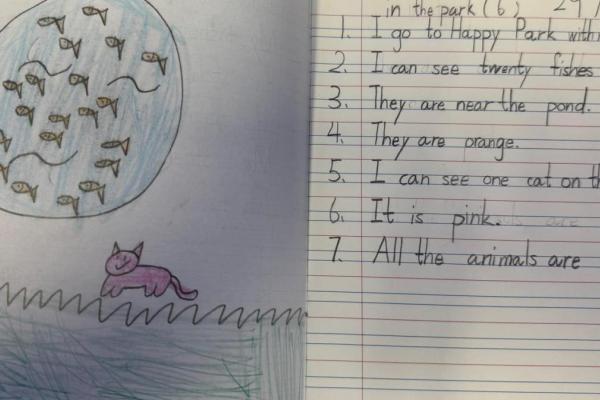 in the park (6) 29/
1. I go to Happy Park with
2. I can see twenty fishes
3. They are near the pond.
4. They are orange.
5. I can see one cat on th
6. It is pink.
7. All the animals are